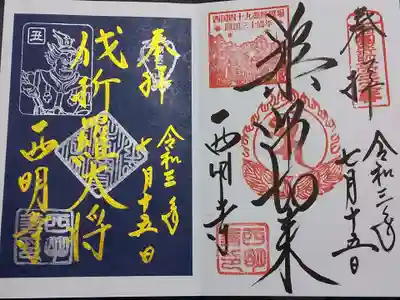 奉拝
西国四十九薬師霊場
開創三十周年
薬師如来
令和三年
七月十五日
西明寺
奉拝
丑
伐折羅大将
令和三年
七月十五日
西明寺